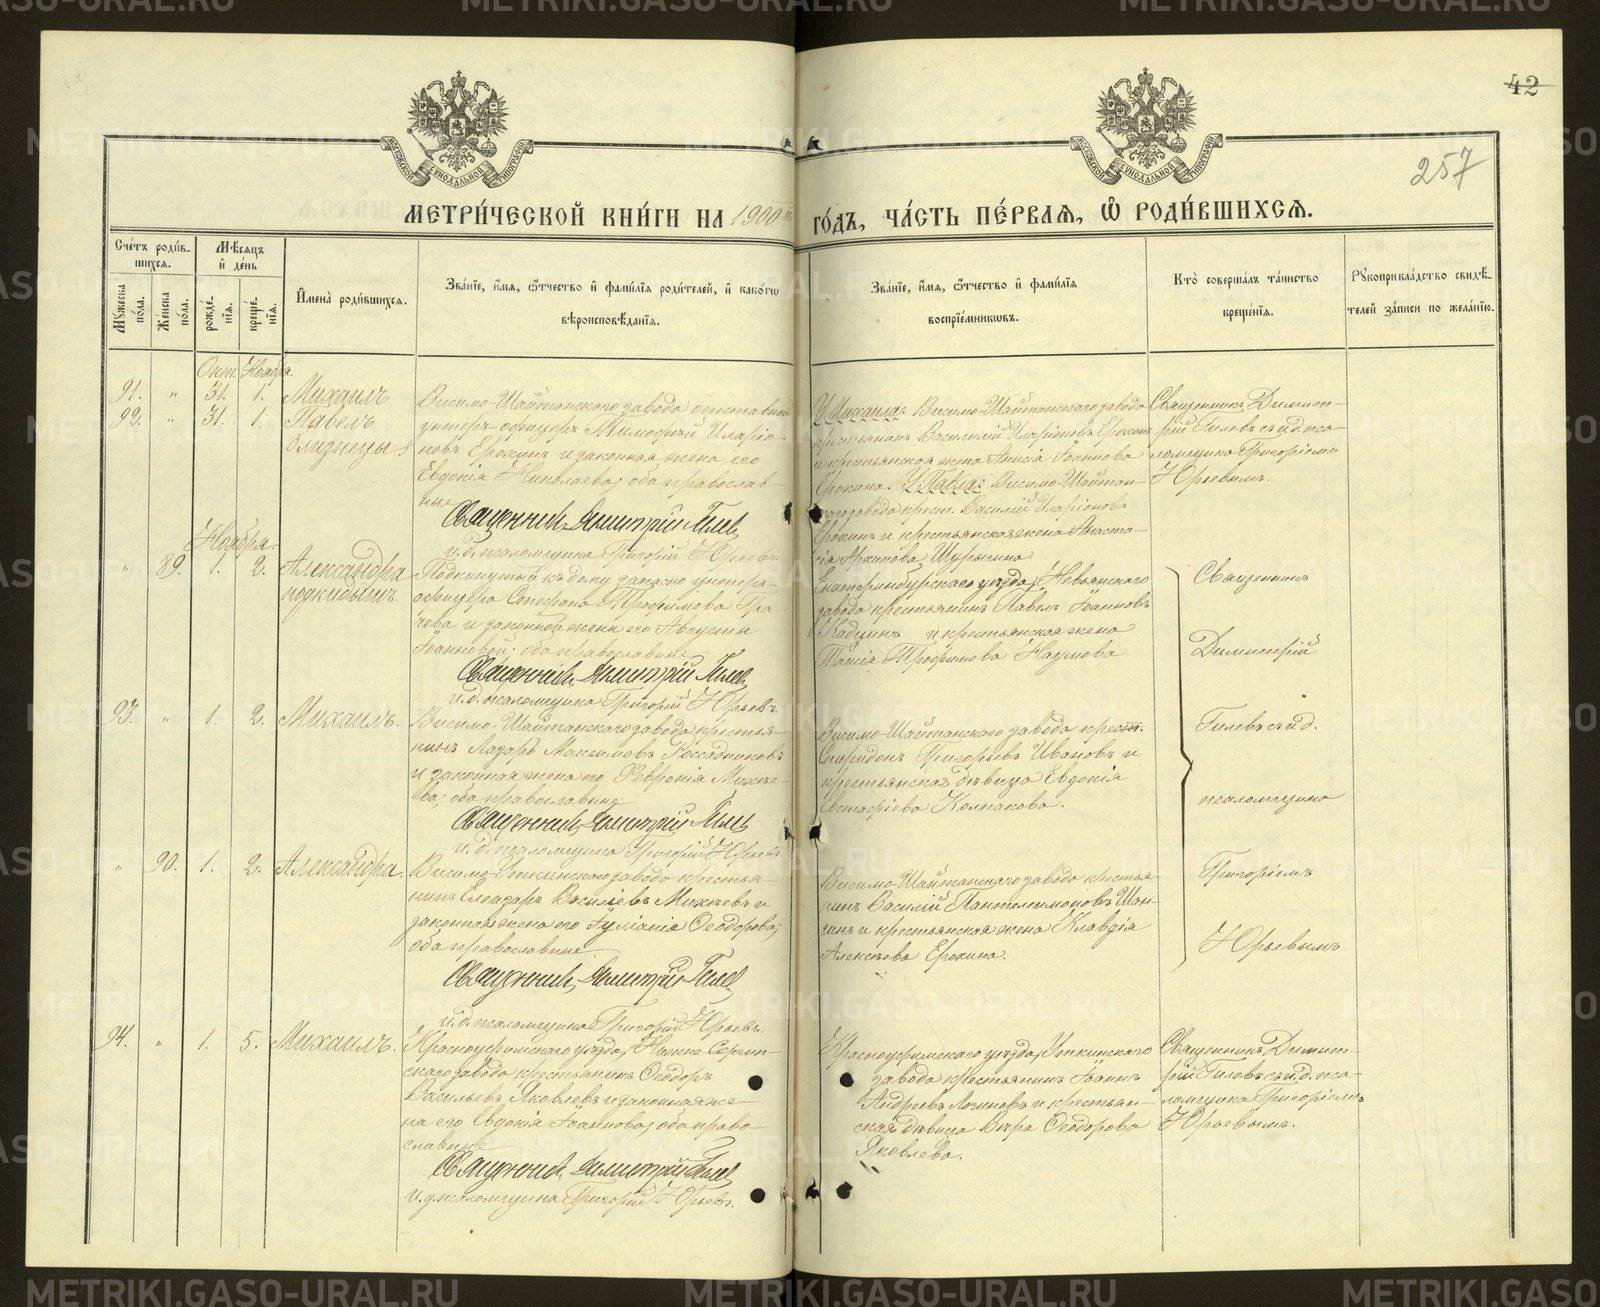 42
257
МЕТРИ́ЧЕСКОЙ КНИ́ГИ НА 1900 й ГО́ДЪ, ЧА́СТЬ ПЕ́РВАѦ, Ѡ҆ РОДИ́ВШИХСѦ.
Сче́тъ роди́в-
шихсѧ.
Мꙋ́жеска по́ла.
Же́нска по́ла.
Мѣ́сѧцъ
и҆ де́нь
рожде́-
нїѧ.
креще́-
нїѧ.
И҆мена̀ роди́вшихсѧ.
Зва́нїе, и҆́мѧ, ѻ҆́тчество и҆ фами́лїѧ роди́телей, и҆ како́гѡ
вѣроисповѣ́данїѧ.
Зва́нїе, и҆́мѧ, ѻ҆́тчество и҆ фами́лїѧ
воспрїе́мникѡвъ.
Кто̀ соверша́лъ та́инство
креще́нїѧ.
Рꙋкоприкла́дство свидѣ́-
телей за́писи по жела́нїю.
Окт. Ноября.
91. " 31. 1. Михаилъ
92. " 31. 1. Павелъ
близнецы.
Висимо-Шайтанскаго завода отставной
унтеръ-офицеръ Тимофей Иларіо-
новъ Ерохинъ и законная жена его
Евдокія Николаева; оба православ-
ные
Священникъ Димитрій Гилевъ
и.д. псаломщика Григорій Юрьевъ
У Михаила: Висимо-Шайтанскаго завода
крестьянинъ Василій Иларіоновъ Ерохинъ
и крестьянская жена Анисія Іоаннова
Ерохина. У Павла: Висимо-Шайтан-
скаго завода крест. Василій Иларіоновъ
Ерохинъ и крестьянская жена Анаста-
сія Архипова Шурыгина
Священникъ Димит-
рій Гилевъ съ и.д. пса-
ломщика Григоріемъ
Юрьевымъ.
Ноября.
" 89. 1. 2. Александра
подкидышъ.
Подкинутый къ дому запасн. унтеръ-
офицера Стефана Трофимова Гра-
чева и законной жены его Августы
Іоанновой; оба православные
Священникъ Димитрій Гилевъ
и.д. псаломщика Григорій Юрьевъ.
Екатеринбургскаго уѣзда, Невьянскаго
завода крестьянинъ Павелъ Іоанновъ
и крестьянская жена
Таисія Трофимова Наумова
Священникъ
Димитрій
Гилевъ съ и.д.
псаломщика
Григоріемъ
Юрьевымъ.
93. " 1. 2. Михаилъ.
Висимо-Шайтанскаго завода крестья-
нинъ Лазарь Максимовъ Россадниковъ
и законная жена его Февронія Михѣе-
ва; оба православные
Священникъ Димитрій Гилевъ
и.д. псаломщика Григорій Юрьевъ.
Висимо-Шайтанскаго завода крест.
Спиридонъ Григорьевъ Ивановъ и
крестьянская дѣвица Евдокія
Евстафіева Колпакова.
" 90. 1. 2. Александра.
Висимо-Уткинскаго завода крестья-
нинъ Елеазаръ Василіевъ Михѣевъ и
законная жена его Іуліанія Ѳеодорова;
оба православные.
Священникъ Димитрій Гилевъ
и.д. псаломщика Григорій Юрьевъ.
Висимо-Шайтанскаго завода крестья-
нинъ Василій Пантелеимоновъ Шан-
гинъ и крестьянская жена Клавдія
Алексѣева Ерохина.
94. " 1. 5. Михаилъ.
Красноуфимскаго уѣзда, Нижне-Сергин-
скаго завода крестьянинъ Ѳеодоръ
Васильевъ Яковлевъ и законная же-
на его Евдокія Іоаннова; оба право-
славные
Священникъ Димитрій Гилевъ
и.д. псаломщика Григорій Юрьевъ.
Красноуфимскаго уѣзда, Уткинскаго
завода крестьянинъ Іоаннъ
Андреевъ Логиновъ и крестьян-
ская дѣвица Вѣра Ѳеодорова
Яковлева.
Священникъ Димит-
рій Гилевъ съ и.д. пса-
ломщика Григоріемъ
Юрьевымъ.
METRIKI.GASO-URAL.RU